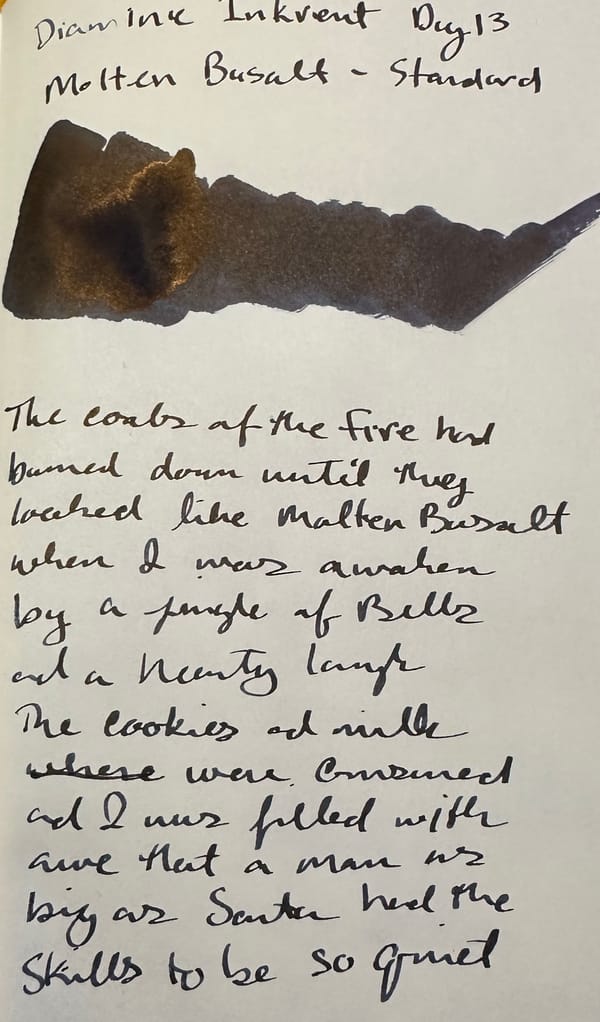 Diamine Inkvent Day 13
Molten Basalt - Standard
The coals of the fire had
burned down until they
looked like Molten Basalt
when I was awaken
by a jingle of Bells
and a hearty laugh
The cookies and milk
where were consumed
and I was filled with
awe that a man as
big as Santa had the
skills to be so quiet